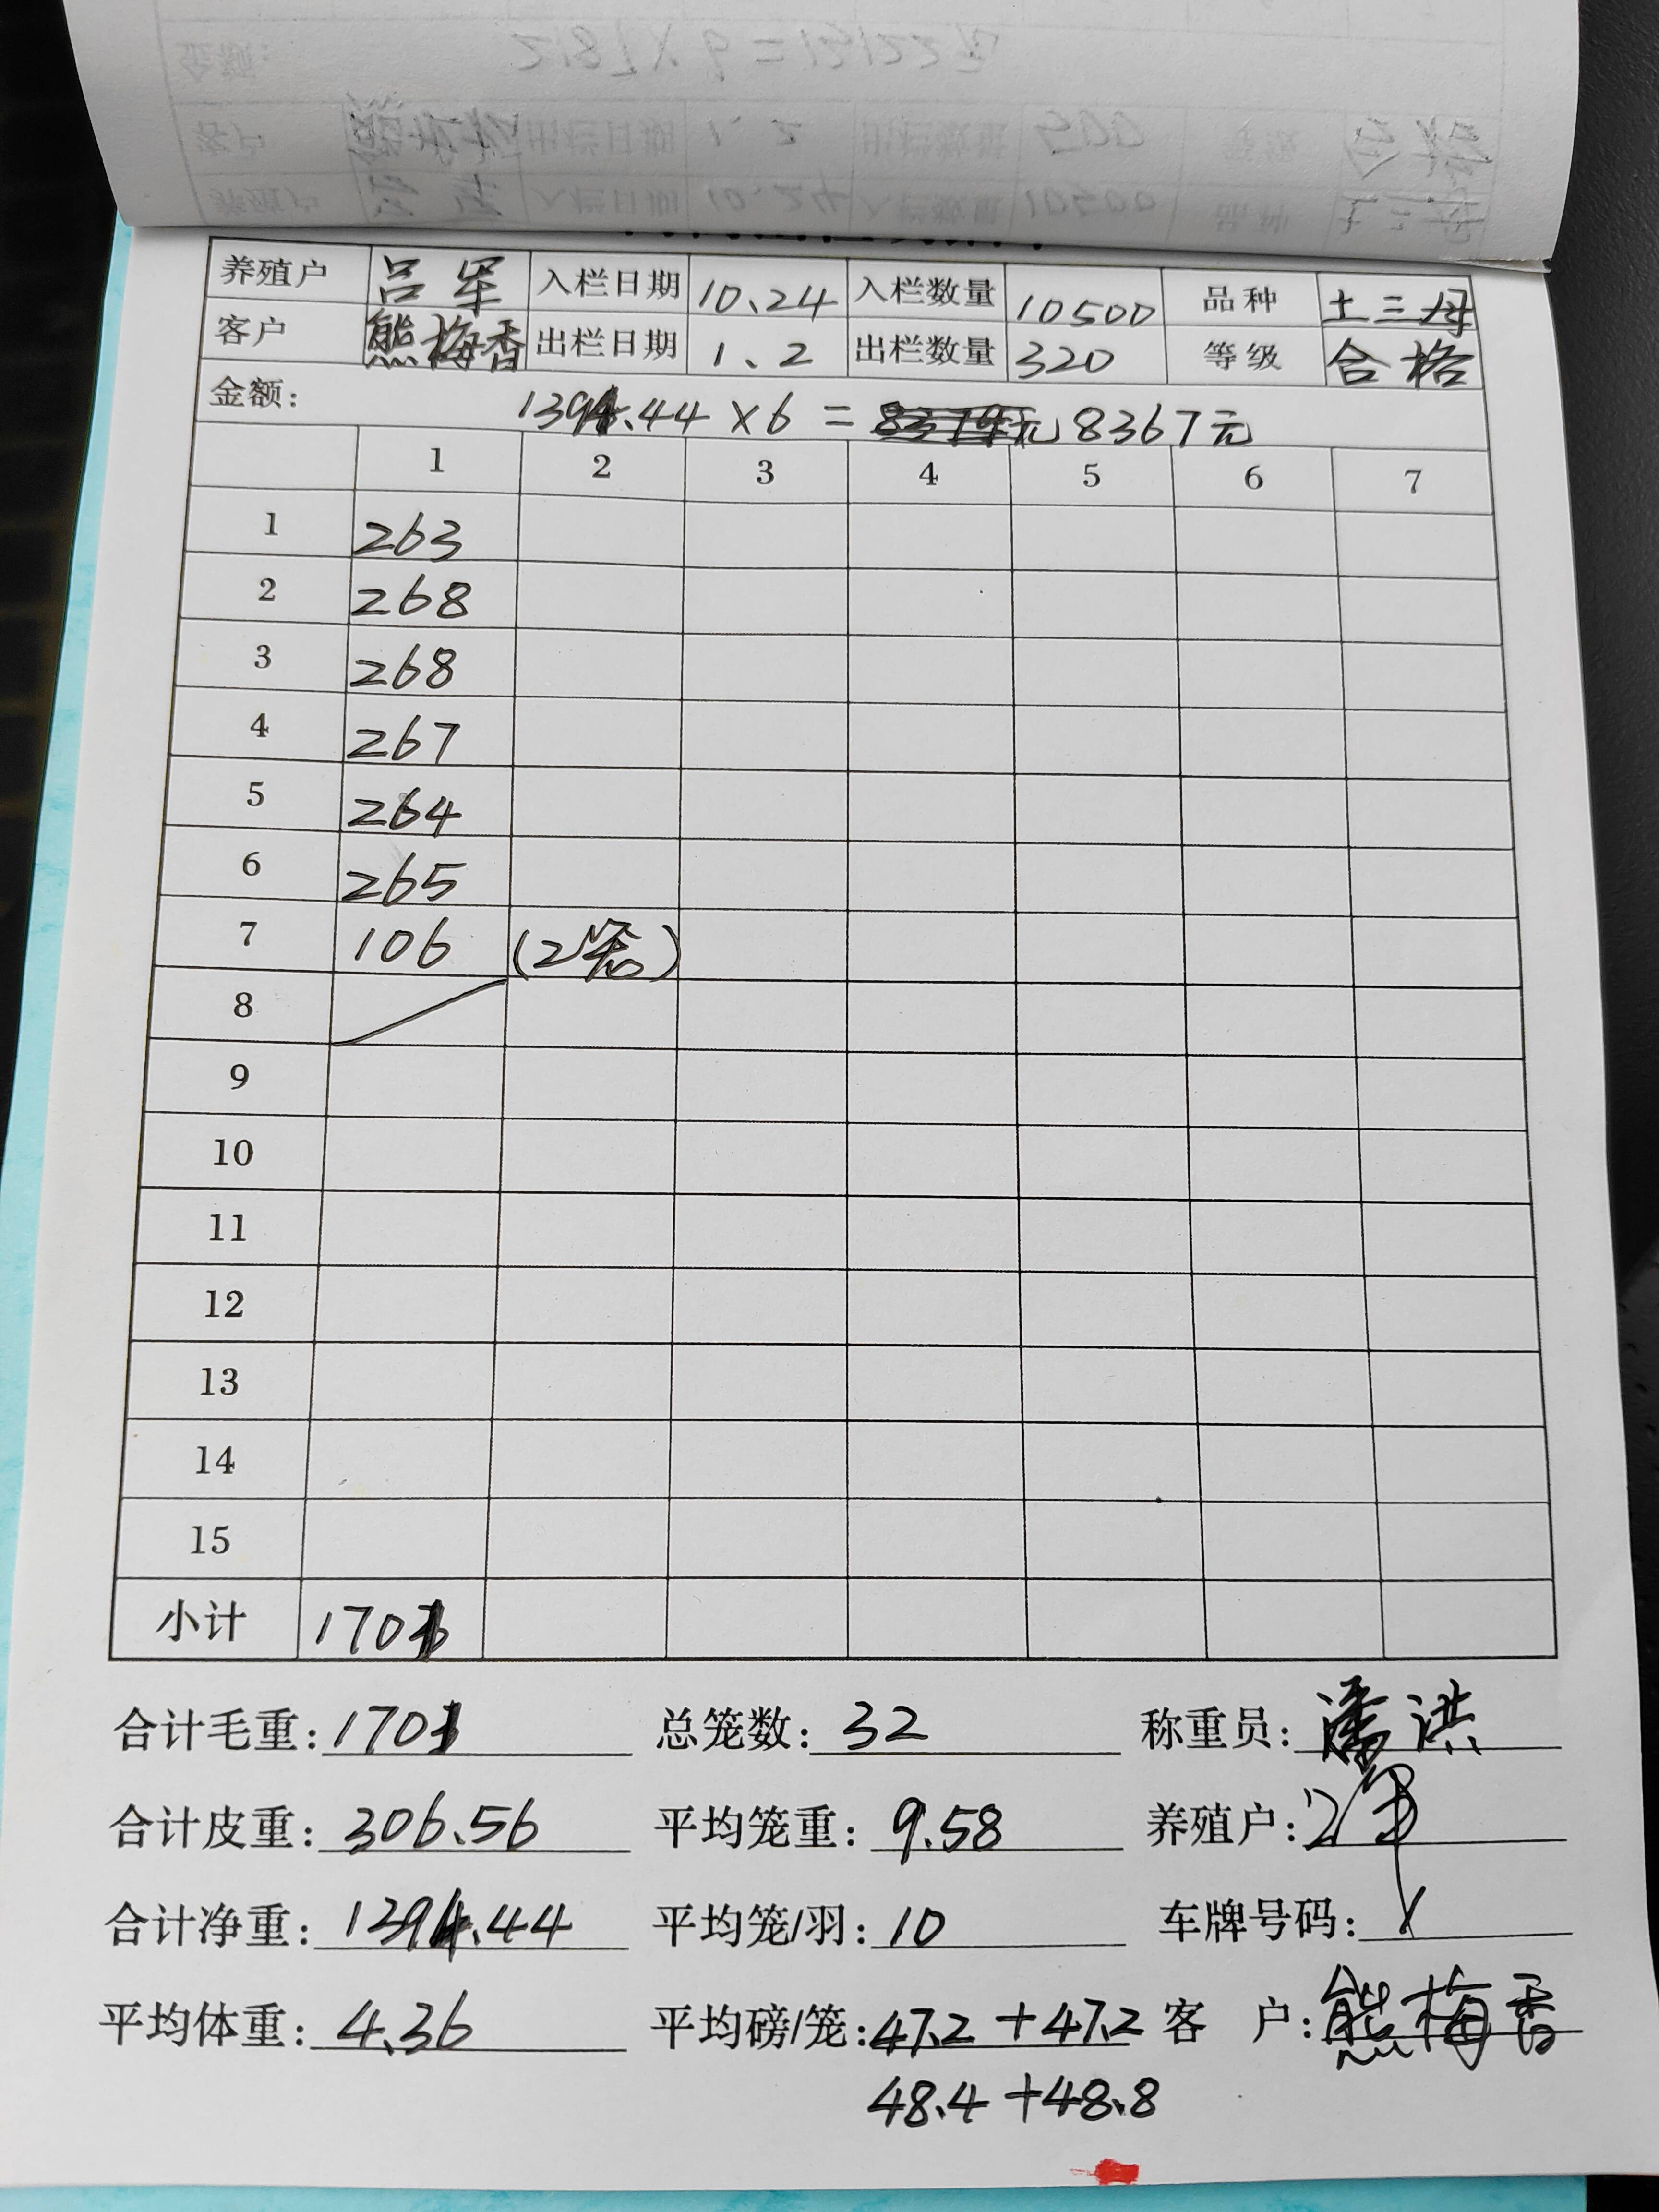 养殖户 吕军 入栏日期 10.24 入栏数量 10500 品种 土三母
客户 熊梅香 出栏日期 1、2 出栏数量 320 等级 合格
金额: 1394.44 × 6 = 8367元
1 2 3 4 5 6 7
1 263
2 268
3 268
4 267
5 264
6 265
7 106 (2笼)
8
9
10
11
12
13
14
15
小计 1701
合计毛重: 1701 总笼数: 32 称重员: 潘洪
合计皮重: 306.56 平均笼重: 9.58 养殖户:
合计净重: 1394.44 平均笼/羽: 10 车牌号码:
平均体重: 4.36 平均磅/笼: 47.2 + 47.2 客 户: 熊梅香
48.4 + 48.8